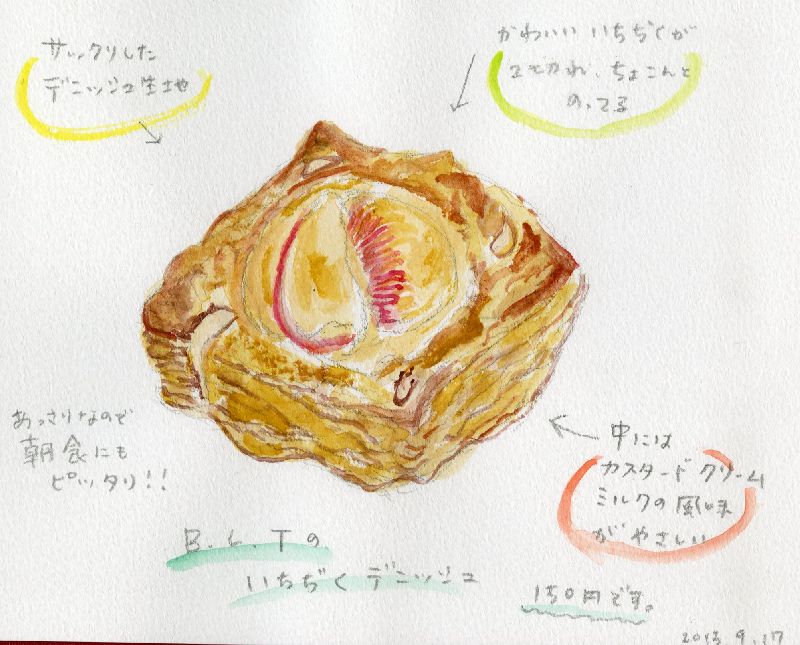 サックリした
デニッシュ生地
かわいい いちぢくが
2つ
ちょこんと
のってる
あっさりなので
朝食にも
ピッタリ!!
中には
カスタードクリーム
ミルクの風味
がやさしい
B.L.Tの
いちぢくデニッシュ
150円です。
2013 9.17